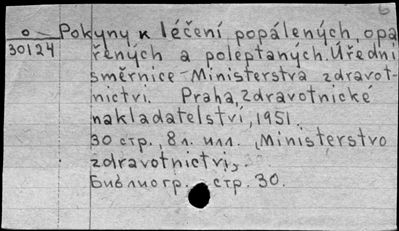 о Pokyny k léčení popálených, opa
30124 řených a poleptaných. Úřední
směrnice Ministerstva zdravot-
nictvi. Praha, Zdravotnické
nakladatelství, 1951.
30 стр., 8 л. илл. , Ministerstvo
zdravotnictvi,.
Библиогр. стр. 30.